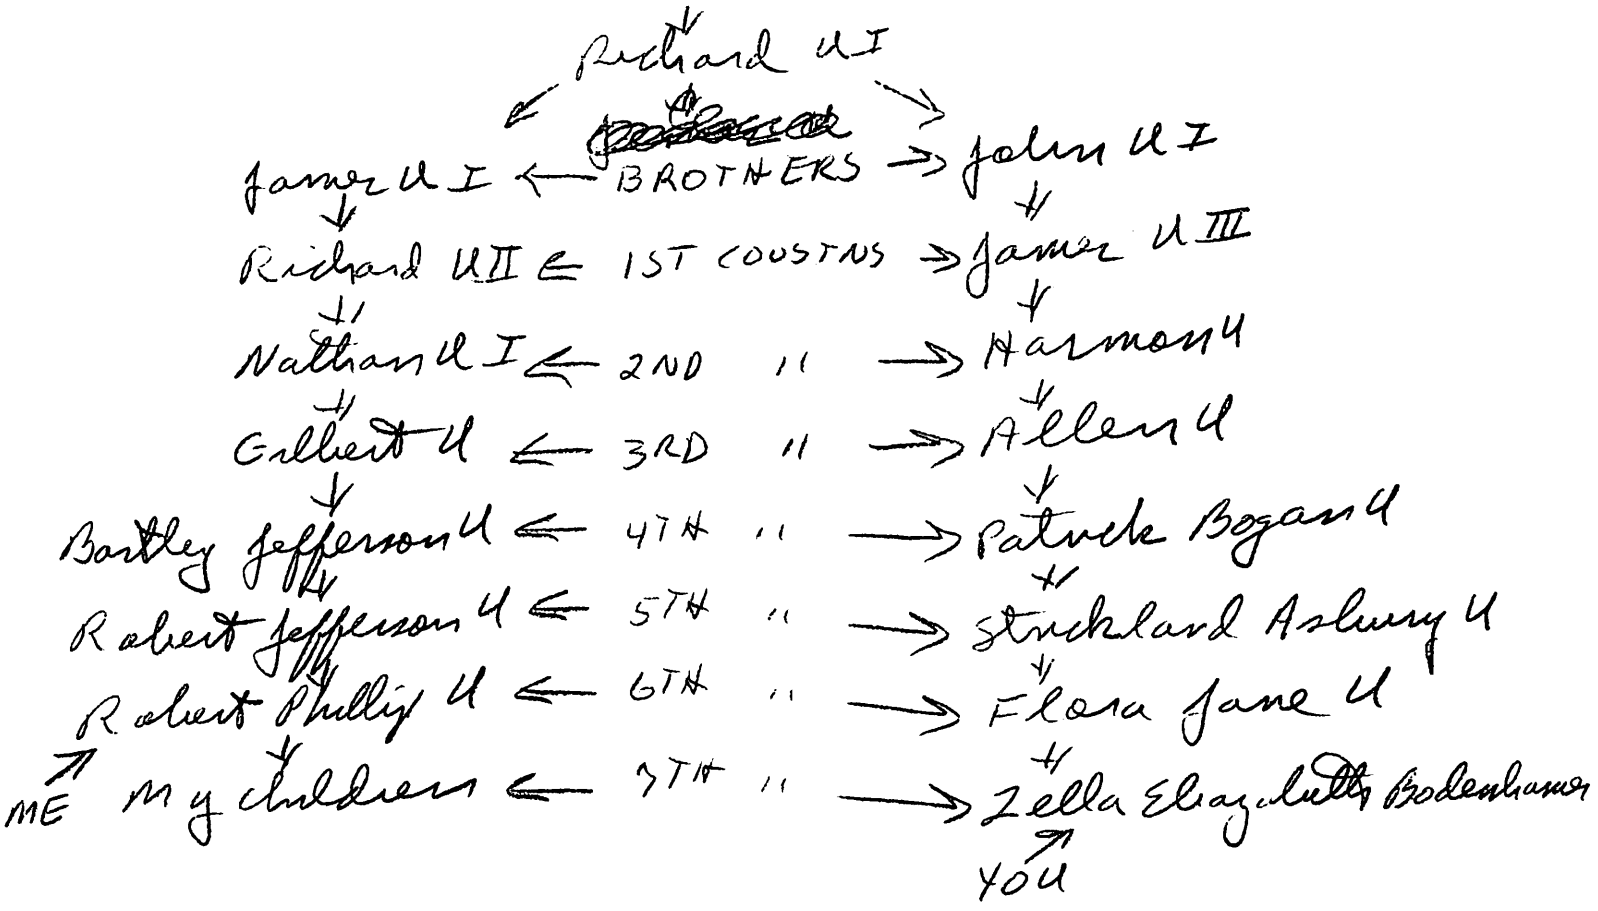 Richard U I
James U I ← BROTHERS → John U I
Richard U II ← 1ST COUSINS → James U III
Nathan U I ← 2ND " → Harmon U
Gilbert U ← 3RD " → Allen U
Bartley Jefferson U ← 4TH " → Patrick Bogan U
Robert Jefferson U ← 5TH " → Strickland Asbury U
Robert Phillip U ← 6TH " → Flora Jane U
ME My children ← 7TH " → Zella Elizabeth Bodenhamer
YOU